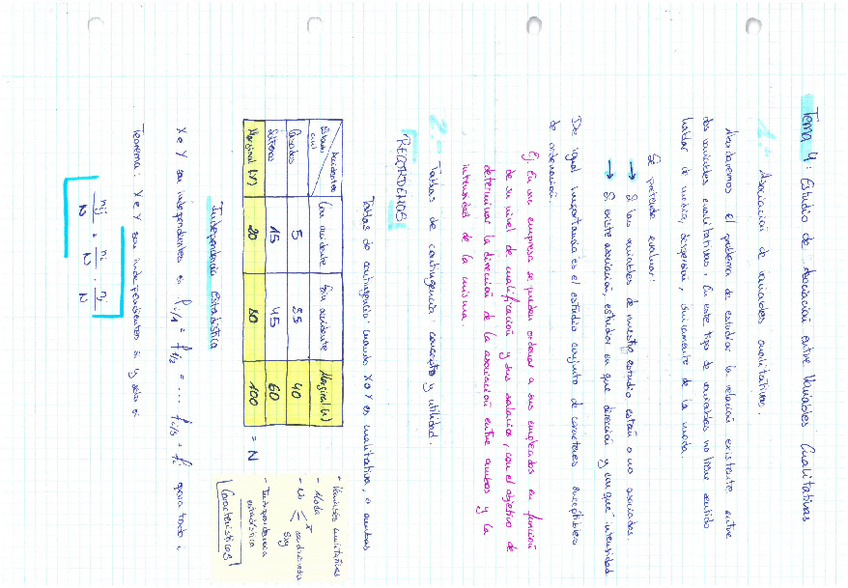 Tema 4: Estudio de Asociación entre Variables Cualitativas
1.- Asociación de variables cualitativas.
Abordaremos el problema de estudiar la relación existente entre
dos variables cualitativas. En este tipo de variables no tiene sentido
hablar de media, dispersión, únicamente de la moda.
Se pretende evaluar:
→ Si las variables de nuestro estudio están o no asociadas.
→ Si existe asociación, estudiar en que dirección y en que intensidad
De igual importancia es el estudio conjunto de caracteres susceptibles
de ordenación.
Ej. En una empresa se pueden ordenar a sus empleados en función
de su nivel de cualificación y sus salarios, con el objetivo de
determinar la dirección de la asociación entre ambos y la
intensidad de la misma.
2.- Tablas de contingencia: concepto y utilidad.
RECORDEMOS
Tablas de contingencia: cuando X o Y es cualitativa, o ambas
Accidentes
Estado civil
Con accidente
Sin accidente
Marginal (X)
Casados 5 35 40
Solteros 15 45 60
Marginal (Y) 20 80 100 = N
- Variables cualitativas
- Moda
- Independencia estadística
Características
Independencia estadística
X e Y son independientes si para todo i
Teorema: X e Y son independientes si y sólo si
nij/N = ni/N · nj/N